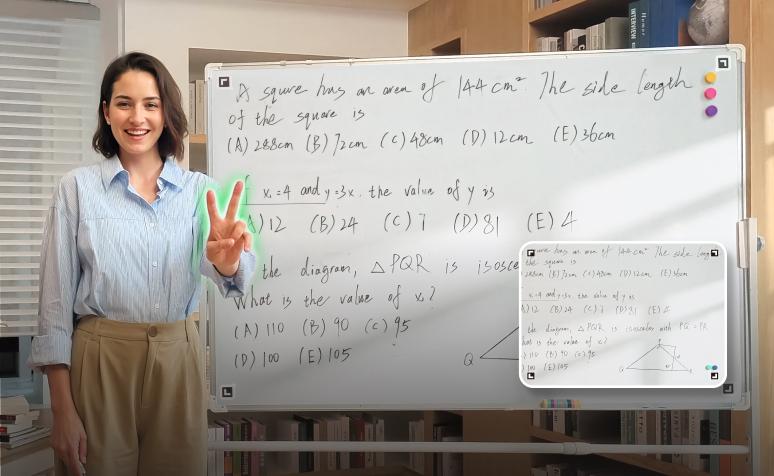 A squre has an area of 144 cm². The side length
of the square is
(A) 288cm (B) 72cm (C) 48cm (D) 12cm (E) 36cm
x=4 and y=3x. the value of y is
A) 12 (B) 24 (C) 7 (D) 81 (E) 4
the diagram, △PQR is isosce
What is the value of x?
(A) 110 (B) 90 (C) 95
(D) 100 (E) 105
Q
INTERVIEW
squre has an area of 144 cm² The side leng
the square is
288cm (B) 72cm (C) 48cm (D) 12cm (E) 36cm
x=4 and y=3x. the value of y is
A) 12 (B) 24 (C) 7 (D) 81 (E) 4
the diagram, △PQR is isosceles with PQ = PR
hat is the value of x?
) 110 (B) 90 (C) 95
) 100 (E) 105
Q